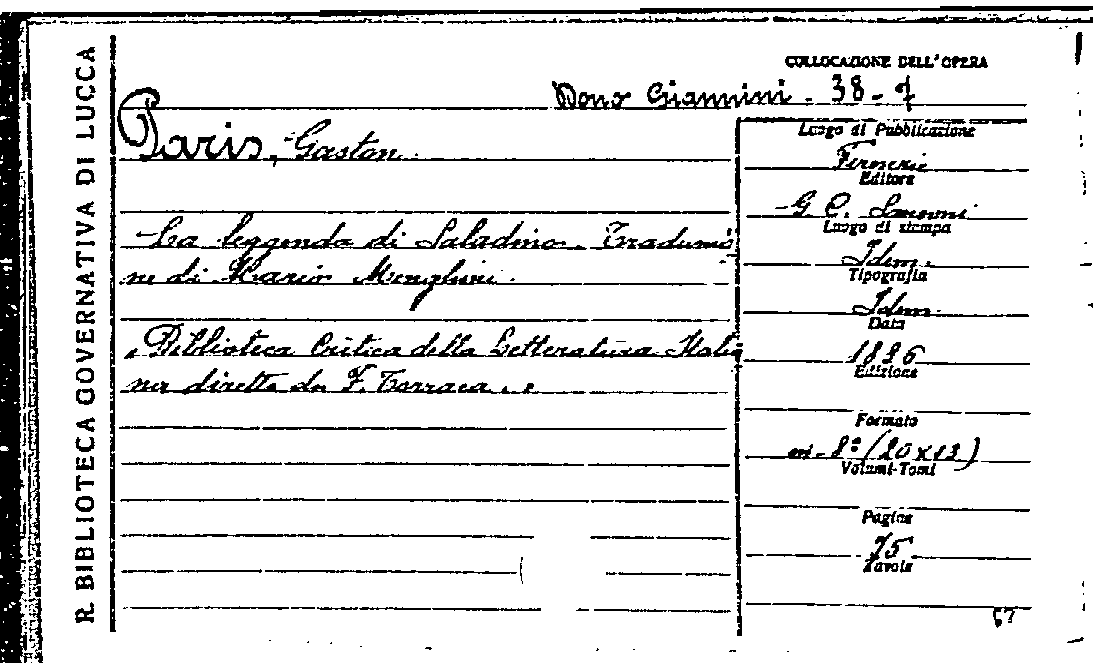 R. BIBLIOTECA GOVERNATIVA DI LUCCA
COLLOCAZIONE DELL'OPERA
Dono Giannini - 38 - 7
Paris, Gaston.
La leggenda di Saladino. Traduzio
ne di Mario Menghini.
"Biblioteca Critica della Letteratura Italia
na diretta da F. Torraca."
Luogo di Pubblicazione
Firenze
Editore
G. C. Sansoni
Luogo di stampa
Idem.
Tipografia
Idem.
Data
1896
Edizione
Formato
in-8° (20x13)
Volumi-Tomi
Pagine
75
Tavole
57